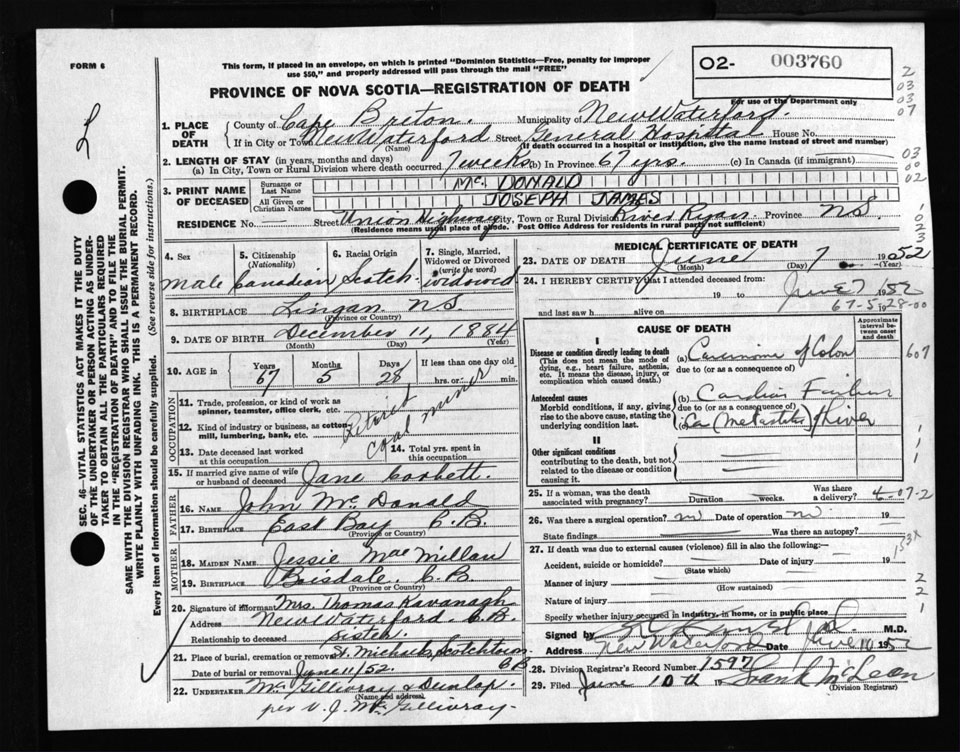 FORM 6
This form, if placed in an envelope, on which is printed "Dominion Statistics—Free, penalty for improper
use $50," and properly addressed will pass through the mail "FREE"
O2- 003760
For use of the Department only
PROVINCE OF NOVA SCOTIA—REGISTRATION OF DEATH
L
2
03
03
07
1. PLACE OF DEATH
County of Cape Breton. Municipality of New Waterford.
If in City or Town New Waterford Street General Hospital House No.
(Name) (If death occurred in a hospital or institution, give the name instead of street and number)
2. LENGTH OF STAY (in years, months and days)
(a) In City, Town or Rural Division where death occurred 7 weeks (b) In Province 67 yrs. (c) In Canada (if immigrant)
03
00
02
3. PRINT NAME OF DECEASED
Surname or Last Name Mc. DONALD
All Given or Christian Names JOSEPH JAMES
RESIDENCE No. Street Union Highway City, Town or Rural Division River Ryan. Province N.S.
(Residence means usual place of abode. Post Office Address for residents in rural parts not sufficient)
1
0
2
3
SEC. 46—VITAL STATISTICS ACT MAKES IT THE DUTY
OF THE UNDERTAKER OR PERSON ACTING AS UNDER-
TAKER TO OBTAIN ALL THE PARTICULARS REQUIRED
IN THE "REGISTRATION OF DEATH" AND TO FILE THE
SAME WITH THE DIVISION REGISTRAR WHO SHALL ISSUE THE BURIAL PERMIT.
WRITE PLAINLY WITH UNFADING INK. THIS IS A PERMANENT RECORD.
Every item of information should be carefully supplied. (See reverse side for instructions.)
4. Sex
Male
5. Citizenship
(Nationality)
Canadian
6. Racial Origin
Scotch
7. Single, Married,
Widowed or Divorced
(write the word)
widowed
8. BIRTHPLACE Lingan. N.S
(Province or Country)
9. DATE OF BIRTH December 11, 1884
(Month) (Day) (Year)
10. AGE in
Years Months Days If less than one day old
67 5 28 hrs. or min.
OCCUPATION
11. Trade, profession, or kind of work as
spinner, teamster, office clerk, etc.
12. Kind of industry or business, as cotton-
mill, lumbering, bank, etc.
Retired
coal miner
13. Date deceased last worked
at this occupation
14. Total yrs. spent in
this occupation
15. If married give name of wife
or husband of deceased Jane Corbett
FATHER
16. NAME John Mc Donald
17. BIRTHPLACE East Bay C.B.
(Province or Country)
MOTHER
18. MAIDEN NAME Jessie Mac Millan
19. BIRTHPLACE Boisdale. C.B.
(Province or Country)
20. Signature of informant Mrs. Thomas Kavanagh
Address New Waterford. C.B.
Relationship to deceased sister.
21. Place of burial, cremation or removal St. Michaels, Scotchtown
C.B
Date of burial or removal June 11/52.
22. UNDERTAKER Mc Gillivray & Dunlap.
(Name and address)
per V. J. Mc Gillivray.
MEDICAL CERTIFICATE OF DEATH
23. DATE OF DEATH June 7 1952
(Month) (Day) (Year)
24. I HEREBY CERTIFY that I attended deceased from:
19 to June 7 1952
67-5-28-00
and last saw h alive on 19
CAUSE OF DEATH
Approximate
interval be-
tween onset
and death
I
Disease or condition directly leading to death
(This does not mean the mode of
dying, e.g., heart failure, asthenia,
etc. It means the disease, injury, or
complication which caused death.)
(a) Carcinoma of Colon
due to (or as a consequence of)
607
Antecedent causes
Morbid conditions, if any, giving
rise to the above cause, stating the
underlying condition last.
(b) Cardiac Failure
due to (or as a consequence of)
(c) (Metastitis) Liver
II
Other significant conditions
contributing to the death, but not
related to the disease or condition
causing it.
1
1
1
25. If a woman, was the death
associated with pregnancy? Duration weeks. Was there
a delivery?
4-07-2
26. Was there a surgical operation? no Date of operation no 19
State findings Was there an autopsy?
153X
27. If death was due to external causes (violence) fill in also the following:—
Accident, suicide or homicide? Date of injury 19
(State which)
Manner of injury
(How sustained)
Nature of injury
2
2
1
Specify whether injury occurred in industry, in home, or in public place
Signed by M.D.
Address New Waterford Date June 10 1952
28. Division Registrar's Record Number 1597
29. Filed June 10th Frank McLean
(Division Registrar)